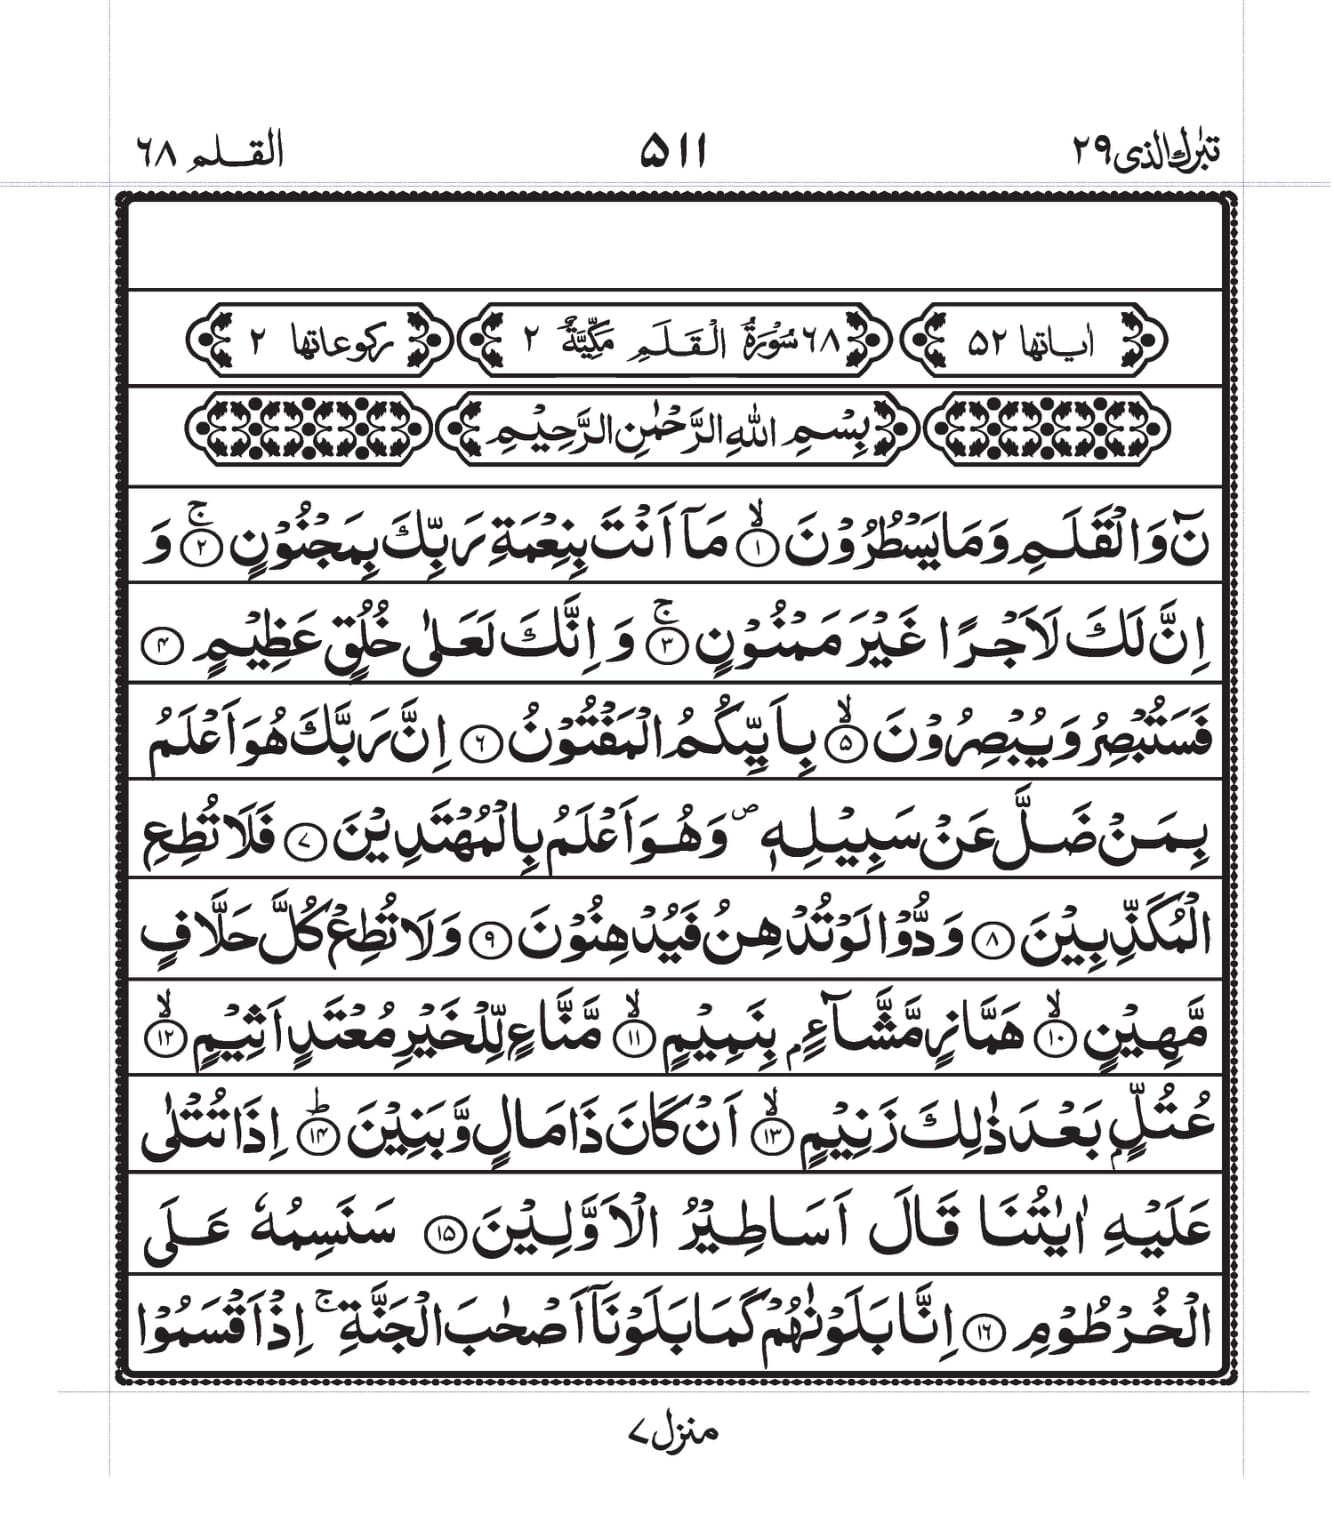 تبٰرك الذی ۲۹
۵۱۱
القلم ۶۸
اٰیاتها ۵۲
۶۸ سُوْرَةُ الْقَلَمِ مَكِّيَّةٌ ۲
ركوعاتها ۲
بِسْمِ اللّٰهِ الرَّحْمٰنِ الرَّحِيْمِ
نٓ وَالْقَلَمِ وَمَا يَسْطُرُوْنَ ۙ﴿۱﴾ مَاۤ اَنْتَ بِنِعْمَةِ رَبِّكَ بِمَجْنُوْنٍ ۚ﴿۲﴾ وَ
اِنَّ لَكَ لَاَجْرًا غَيْرَ مَمْنُوْنٍ ۚ﴿۳﴾ وَ اِنَّكَ لَعَلٰى خُلُقٍ عَظِيْمٍ ﴿۴﴾
فَسَتُبْصِرُ وَيُبْصِرُوْنَ ۙ﴿۵﴾ بِاَيِّىكُمُ الْمَفْتُوْنُ ﴿۶﴾ اِنَّ رَبَّكَ هُوَ اَعْلَمُ
بِمَنْ ضَلَّ عَنْ سَبِيْلِهٖ ۖ وَهُوَ اَعْلَمُ بِالْمُهْتَدِيْنَ ﴿۷﴾ فَلَا تُطِعِ
الْمُكَذِّبِيْنَ ﴿۸﴾ وَدُّوْا لَوْ تُدْهِنُ فَيُدْهِنُوْنَ ﴿۹﴾ وَلَا تُطِعْ كُلَّ حَلَّافٍ
مَّهِيْنٍ ۙ﴿۱۰﴾ هَمَّازٍ مَّشَّآءٍۭ بِنَمِيْمٍ ۙ﴿۱۱﴾ مَّنَّاعٍ لِّلْخَيْرِ مُعْتَدٍ اَثِيْمٍ ۙ﴿۱۲﴾
عُتُلٍّۭ بَعْدَ ذٰلِكَ زَنِيْمٍ ۙ﴿۱۳﴾ اَنْ كَانَ ذَا مَالٍ وَّبَنِيْنَ ؕ﴿۱۴﴾ اِذَا تُتْلٰى
عَلَيْهِ اٰيٰتُنَا قَالَ اَسَاطِيْرُ الْاَوَّلِيْنَ ﴿۱۵﴾ سَنَسِمُهٗ عَلَى
الْخُرْطُوْمِ ﴿۱۶﴾ اِنَّا بَلَوْنٰهُمْ كَمَا بَلَوْنَاۤ اَصْحٰبَ الْجَنَّةِ ۚ اِذْ اَقْسَمُوْا
منزل ۷